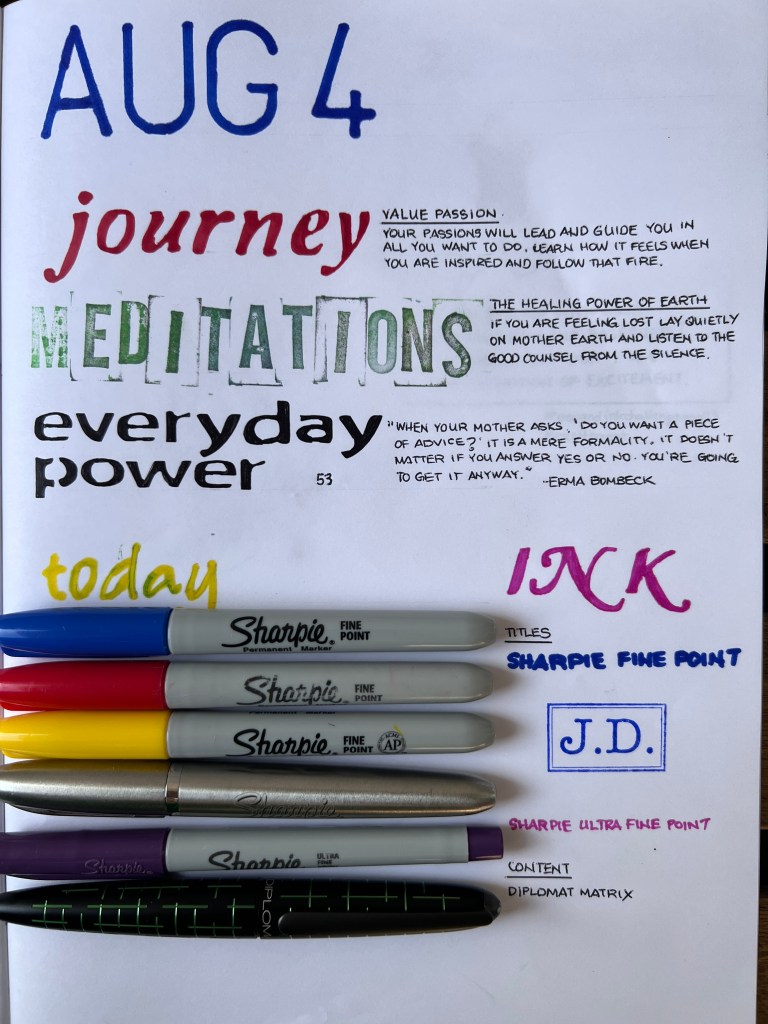 AUG 4
journey
VALUE PASSION.
YOUR PASSIONS WILL LEAD AND GUIDE YOU IN
ALL YOU WANT TO DO. LEARN HOW IT FEELS WHEN
YOU ARE INSPIRED AND FOLLOW THAT FIRE.
MEDITATIONS
THE HEALING POWER OF EARTH
IF YOU ARE FEELING LOST LAY QUIETLY
ON MOTHER EARTH AND LISTEN TO THE
GOOD COUNSEL FROM THE SILENCE.
everyday
power
53
"WHEN YOUR MOTHER ASKS, 'DO YOU WANT A PIECE
OF ADVICE?' IT IS A MERE FORMALITY. IT DOESN'T
MATTER IF YOU ANSWER YES OR NO. YOU'RE GOING
TO GET IT ANYWAY."
-ERMA BOMBECK
today
INK
TITLES
SHARPIE FINE POINT
J.D.
SHARPIE ULTRA FINE POINT
CONTENT
DIPLOMAT MATRIX
Sharpie. FINE POINT
Permanent Marker
Sharpie. FINE POINT
Sharpie. FINE POINT AP
Sharpie
Sharpie. Sharpie. ULTRA FINE
DIPLOM